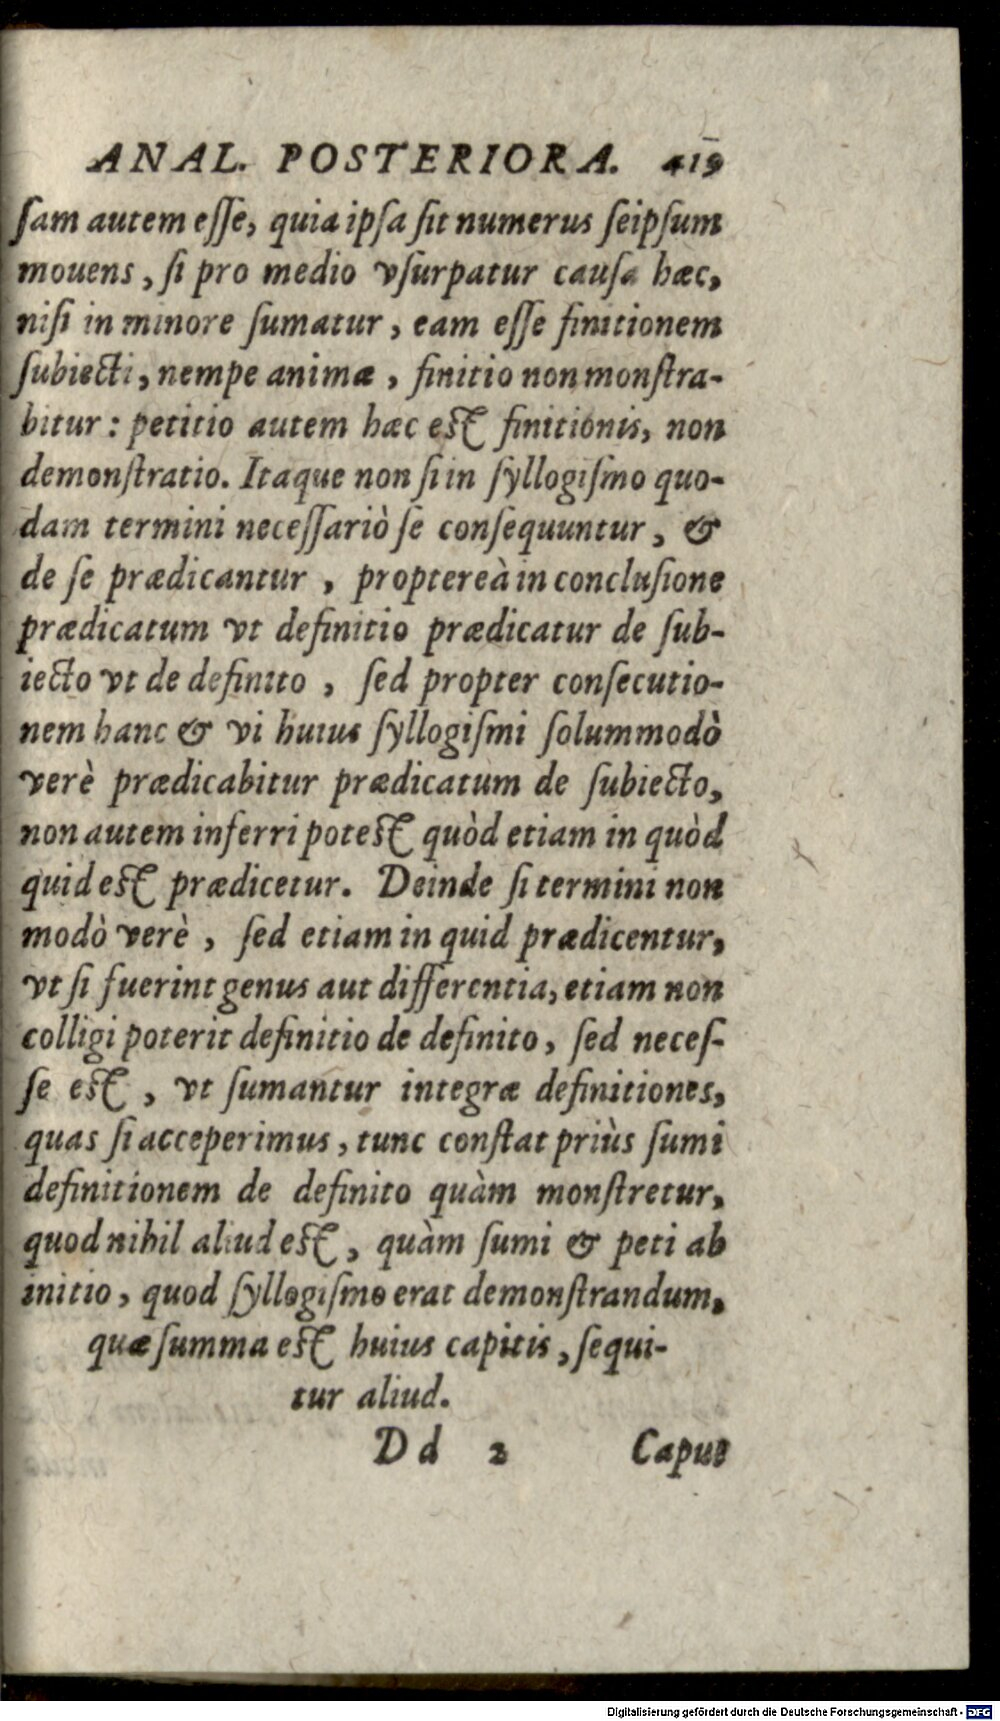 ANAL. POSTERIORA. 419
ſam autem eſſe, quia ipſa ſit numerus ſeipſum
mouens, ſi pro medio vſurpatur cauſa hæc,
niſi in minore ſumatur, eam eſſe finitionem
ſubiecti, nempe animæ, finitio non monſtra-
bitur: petitio autem hæc eſt finitionis, non
demonſtratio. Itaque non ſi in ſyllogiſmo quo-
dam termini neceſſariò ſe conſequuntur, &
de ſe prædicantur, proptereà in concluſione
prædicatum vt definitio prædicatur de ſub-
iecto vt de definito, ſed propter conſecutio-
nem hanc & vi huius ſyllogiſmi ſolummodò
verè prædicabitur prædicatum de ſubiecto,
non autem inferri poteſt quòd etiam in quòd
quid eſt prædicetur. Deinde ſi termini non
modò verè, ſed etiam in quid prædicentur,
vt ſi fuerint genus aut differentia, etiam non
colligi poterit definitio de definito, ſed neceſ-
ſe eſt, vt ſumantur integræ definitiones,
quas ſi acceperimus, tunc conſtat priùs ſumi
definitionem de definito quàm monſtretur,
quod nihil aliud eſt, quàm ſumi & peti ab
initio, quod ſyllogiſmo erat demonſtrandum,
quæ ſumma eſt huius capitis, ſequi-
tur aliud.
Dd 2 Caput
Digitalisierung gefördert durch die Deutsche Forschungsgemeinschaft - DFG